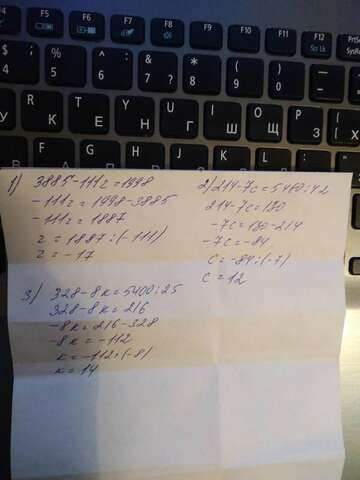 F4 F5 F6 F7 F8 F9 F10 F11 F12 PrtSc
Scr Lk SysRq
$ % ^ & * ( ) _ +
4 5 6 7 8 9 0 - =
У К Е Н Г Ш Щ З Х
R T Y U I O P
1) 3885-111z=1998
-111z=1998-3885
-111z=1887
z=1887:(-111)
z=-17
2) 214-7c=5460:42
214-7c=130
-7c=130-214
-7c=-84
c=-84:(-7)
c=12
3) 328-8k=5400:25
328-8k=216
-8k=216-328
-8k=-112
k=-112:(-8)
k=14